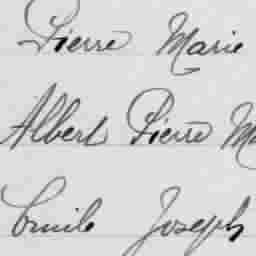 Pierre Marie
Albert Pierre Ma
Emile Joseph